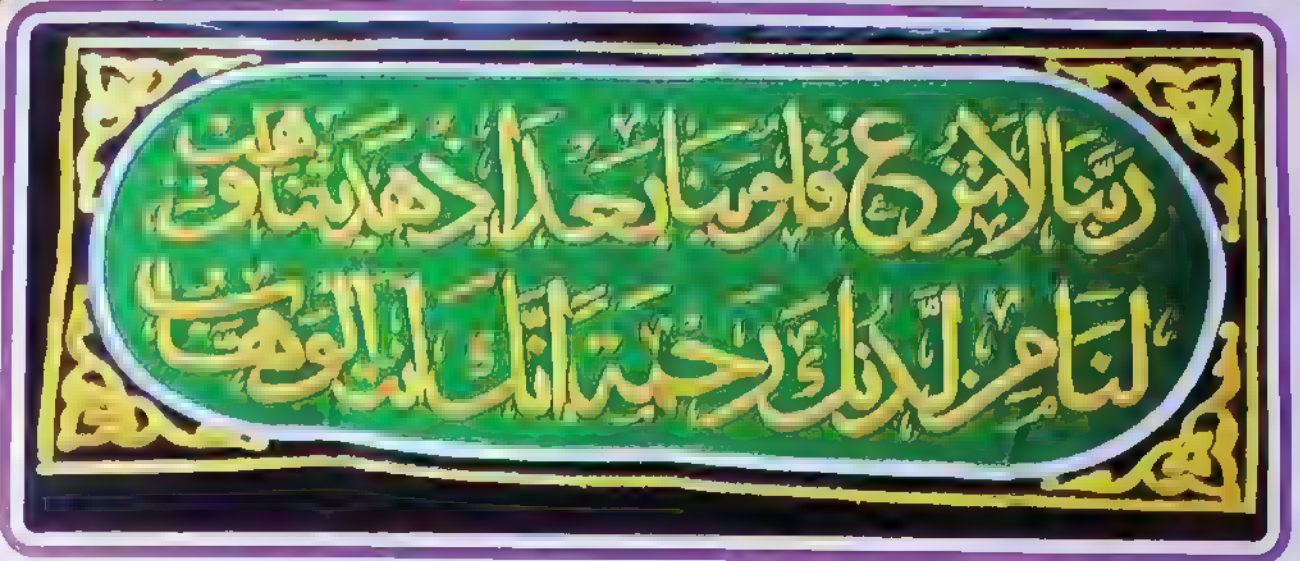 ربنا لا تزغ قلوبنا بعد اذ هديتنا وهب
لنا من لدنك رحمة انك انت الوهاب